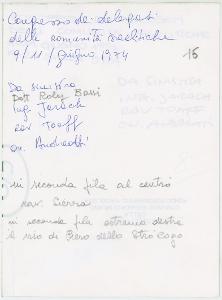 Congresso dei delegati
delle comunità israelitiche
9/11/giugno 1974
15
Da sinistra
Dott Roby Bassi
rav Toaff
on. Andreotti
in seconda fila al centro
rav. Sierra
in seconda fila estrema destra
il viso di Piero dello Strologo